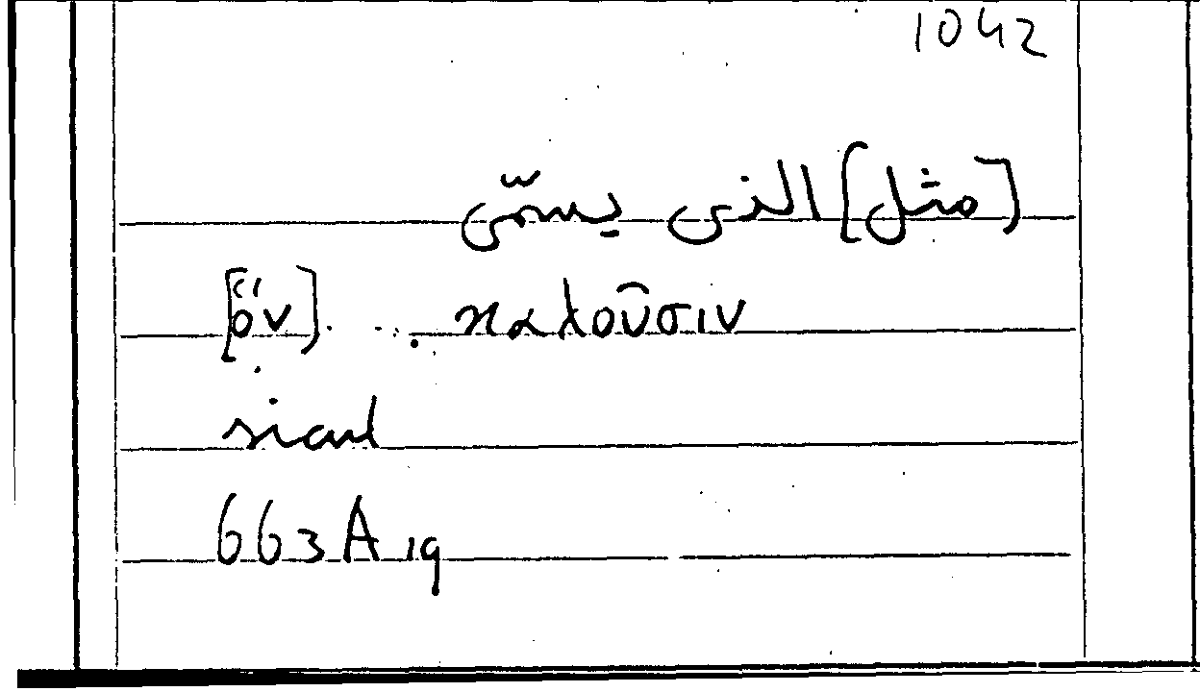 1042
[مثل] الذى يسمّى
[ὃν] ... καλοῦσιν
sicut
663A19